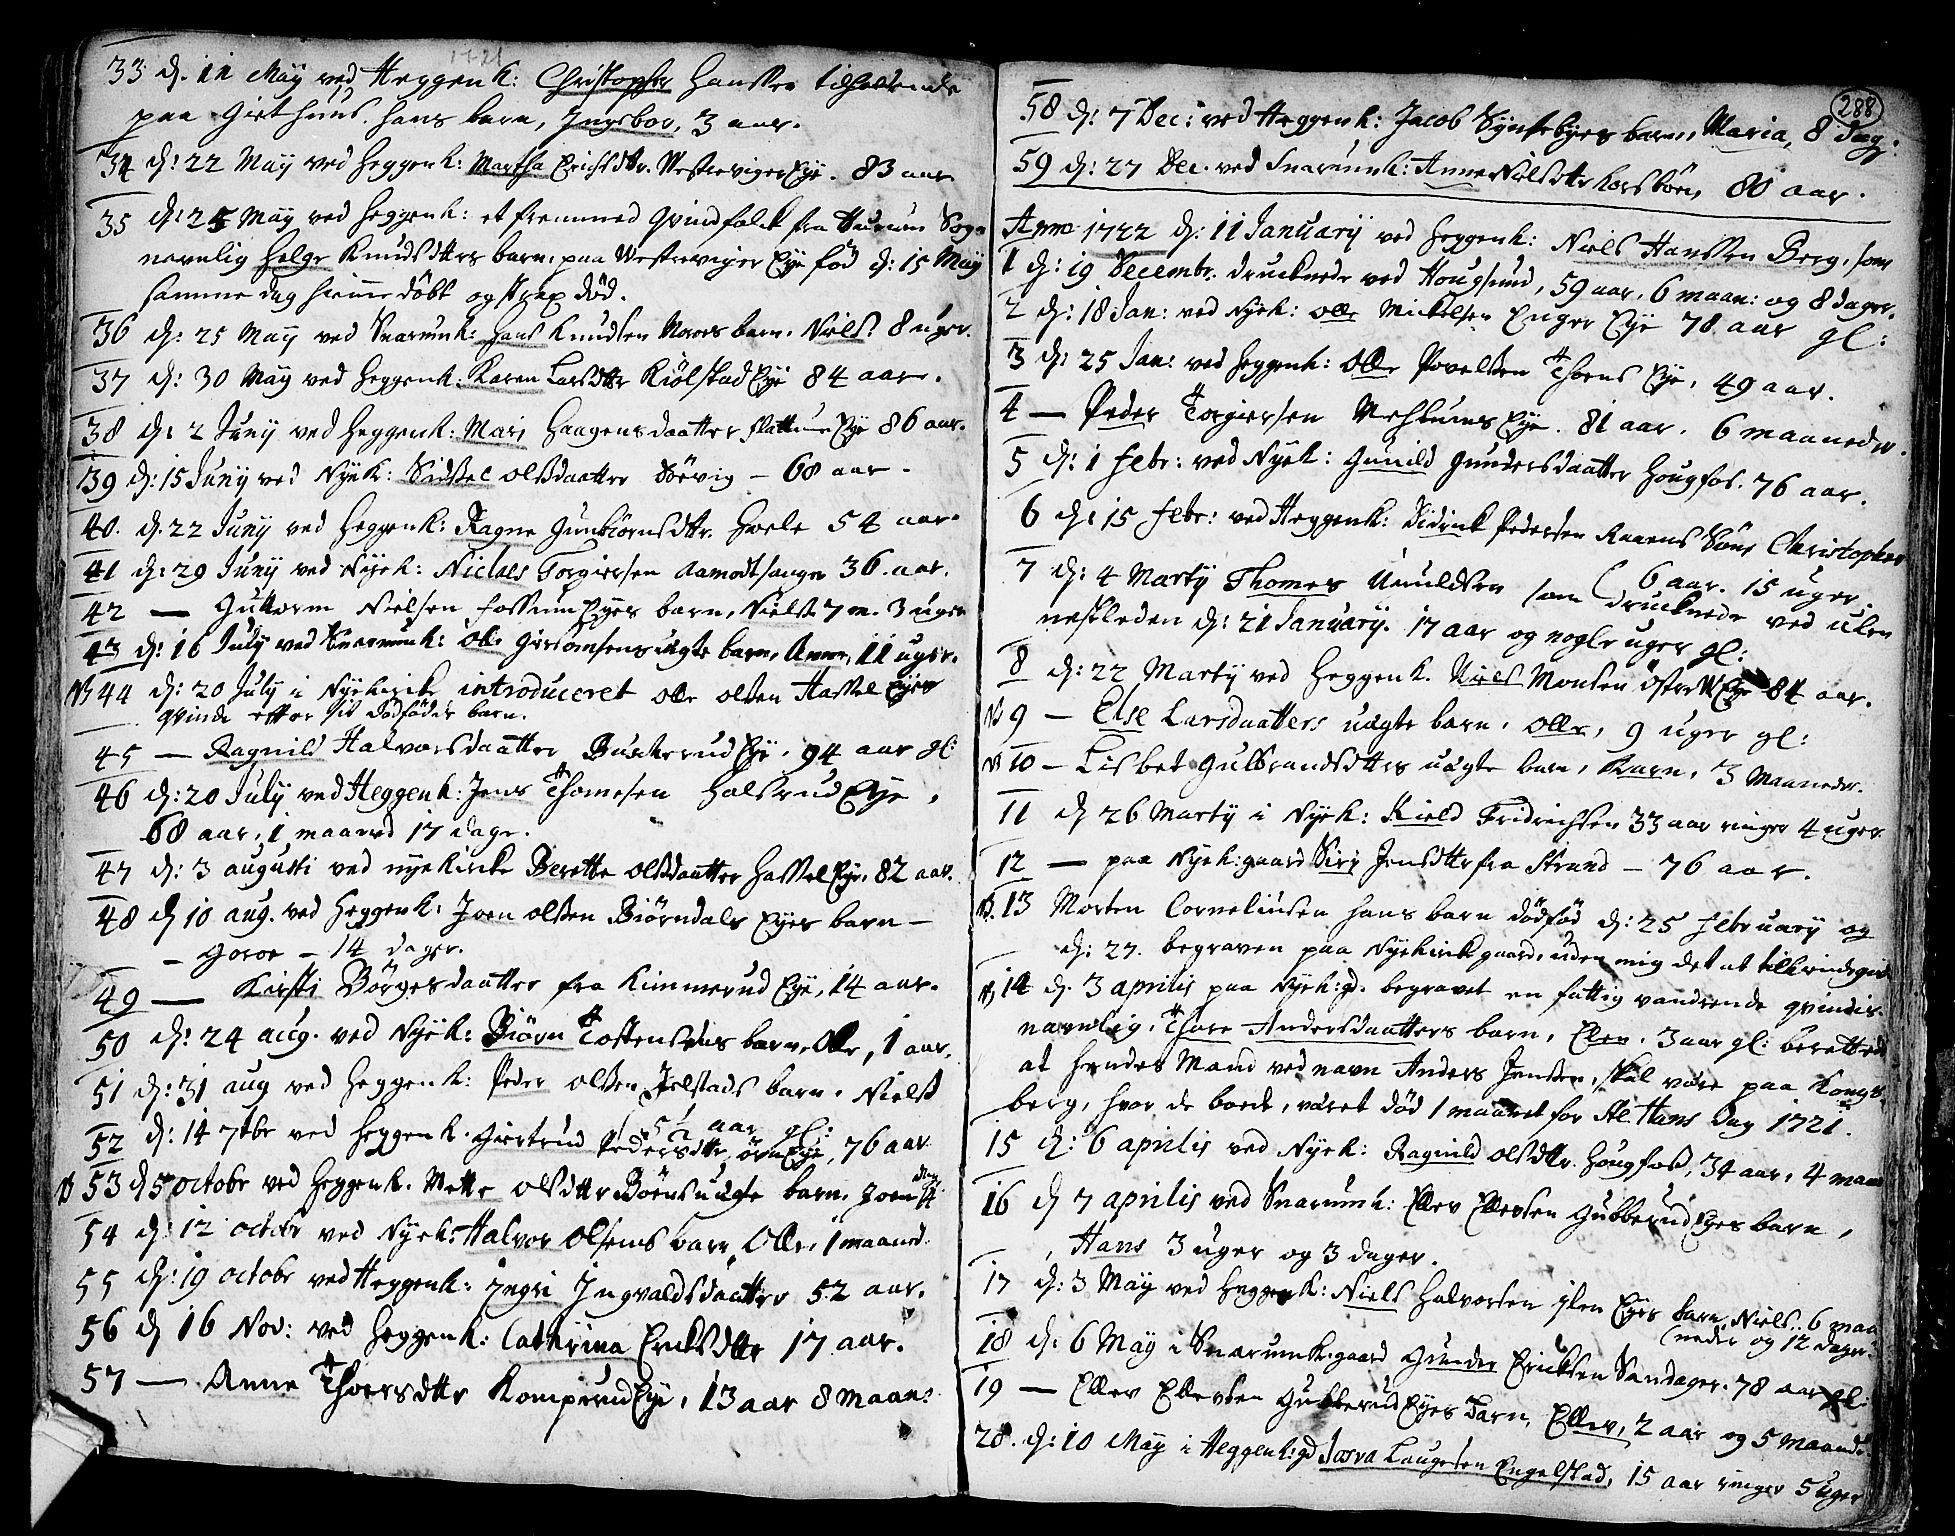 1721
33 d. 11 May ved Heggenk: Christopher Hanssen tilholdende
paa Giethuus. hans barn, Ingebor, 3 aar.
34 d: 22 May ved Heggenk: Martha Erichsdtr. Westreviger Eye. 83 aar
35 d: 25 May ved Heggenk: et fremmed Qvindfolk fra Hurum Sogn
navnlig Helge Knudsdtters barn, paa Westreviger Eye fød d: 15 May
samme dag hiemedøbt og strax død.
36 d: 25 May ved Snarumk: Hans Knudsen Moens barn, Niels. 8 uger.
37 d: 30 May ved Heggenk: Karen Larsdttr Kiølstad Eye 84 aar.
38 d: 2 Juny ved Heggenk: Mari Haagensdaatter Flattum Eye 86 aar.
39 d: 15 Juny ved Nyek: Sidsel Olsdaatter Sørvig – 68 aar.
40. d. 22 Juny ved Heggenk: Ragne Gunbiørnsdtr. Hoele 54 aar.
41 d: 29 Juny ved Nyek: Niclaes Torgiersen Aamodtsangen 36. aar.
42 — Guttorm Nielsen Fossum Eyes barn, Niels 7 m. 3 uger
43 d: 16 July ved Snarumk: Olle Giermsens ægte barn, Anne, 11 uger.
NB 44 d: 20 July i Nyekirke introduceret Olle Olsen Hassel Eyes
qvinde efter sit dødfødde barn.
45 — Ragnild Halvorsdaatter Buskerud Eye, 94 aar gl:
46 d: 20 July ved Heggenk: Jens Thomesen Halsrud Eye,
68 aar, 1 maaned 17 dage.
47 d: 3 augusti ved nyekirke Berette Olsdaatter Hassel Eye, 82 aar.
48 d 10 aug. ved Heggenk: Joen Olsen Biørndals Eyes barn –
– Goroe – 14 dager.
49 — Kirsti Børgesdaatter fra Kimmerud Eye, 14 aar.
50 d: 24 aug. ved Nyek: Biørn Tostensens barn, Olle, 1 aar.
51 d: 31 aug ved Heggenk: Peder Olsen Jelstads barn. Niels
( 5 1/2 aar gl:
52 d: 14 7tbr ved Heggenk. Giertrud Pedersdtter, Ørn Eye, 76 aar
NB 53 d 5 octobr ved Heggenk. Mette Olsdttr Bøens uægte barn. Joen 14 dag
54 d: 12 octobr ved Nyek: Halvor Olsens barn, Olle, 1 maaned.
55 d: 19 octobr ved Heggenk: Ingri Ingvaldsdaatter 52 aar.
56 d 16 Nov: ved Heggenk: Cathrina Ericksdttr 17 aar.
57 — Anne Thoersdttr Komperud Eye, 13 aar 8 maan:
288
58 d: 7 Dec: ved Heggenk: Jacob Synsebyes barn, Maria, 8 dag:
59 d: 27 Dec. ved Snarumk: Anne Nilsdttr Korsbøen, 80 aar.
Anno 1722 d: 11 January ved Heggenk: Niels Hanssen Berg, som
1 d: 19 Decembr. drucknede ved Hougsund, 59 aar, 6 maan: og 8 dager.
2 d: 18 Jan: ved Nyek: Olle Mickelsen Enger Eye 78 aar gl:
3 d: 25 Jan: ved Heggenk: Olle Povelsen Thoens Eye, 49 aar.
4 — Peder Torgiersen Mehlums Eye. 81 aar. 6 maaneder.
5 d: 1 Febr: ved Nyek: Gunild Gundersdaatter Hougfos. 76 aar.
6 d: 15 Febr: ved Heggenk: Didrick Pedersen Raaens Søn, Christopher
( 6 aar. 15 uger.
7 d: 4 Marty Thomes Unuldsen som drucknede ved Ulen
nestleden d: 21 January. 17 aar og nogle uger gl:
8 d: 22 Marty ved Heggenk. Niels Monsen Østre W Eye 84 aar.
NB 9 — Else Larsdaatters uægte barn, Olle, 9 uger gl:
NB 10 – Lisbet Gulbrandsdtters uægte barn, Karn, 3 Maaneder.
11 d 26 Marty i Nyek: Kield Fridrichsen 33 aar ringer 4 uger.
12 — paa Nyek:gaard Siry Jensdttr fra Strand – 76 aar.
NB. 13 Morten Corneliusen hans barn dødfød d: 25 February og
d: 27. begraven paa Nyekirkegaard, uden mig det at tilkiendegive
NB 14 d. 3 aprilis paa Nyek:gd. begravet en fattig vandrende qvindis
navnlig, Thore Andersdaatters barn, Elen. 3 aar gl: berettede
at hendes Mand ved navn Anders Jensen, skal være paa Kongs-
berg, hvor de boede, været død 1 maanet for St Hans Dag 1721.
15 d: 6 aprilis ved Nyek: Ragnild Olsdttr. Hougfos, 34 aar, 4 maan
16 d 7 aprilis ved Snarumk: Ellev Ellevsen Gubberud Eyes barn,
, Hans 3 uger og 3 dager.
17 d: 3 May ved Heggenk: Niels Halvorsen Islen Eyes barn, Niels. 6 maa
(neder og 12 dager.
18 d: 6 May i Snarumk:gaard Gunder Ericksen Sandager. 78 aar gl:
19 — Ellev Ellevsen Gubberud Eyes barn, Ellev, 2 aar og 5 maaned
20. d: 10 May i Heggenk:gd Laugesen Engelstad, 15 aar ringer 5 uger